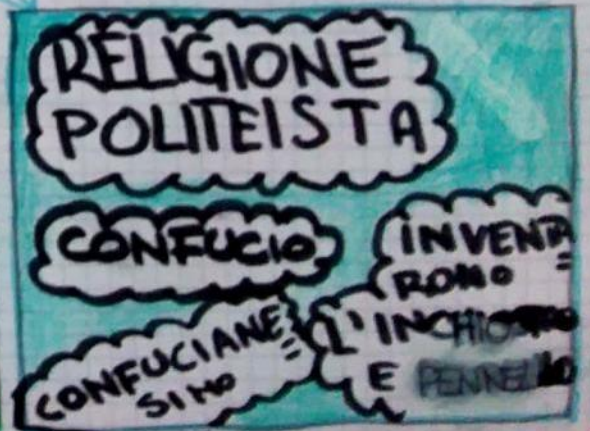 RELIGIONE
POLITEISTA
CONFUCIO
CONFUCIANE=
SIMO
INVENTA=
RONO
L'INCHIOSTRO
E PENNELLO